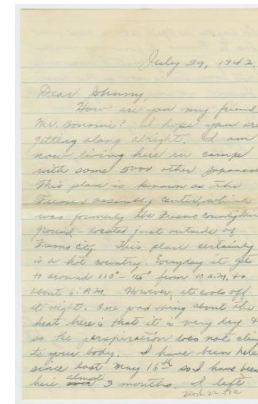 July 29, 1942
Dear Johnny,
How are you my friend,
Mr. ? I hope you are
getting along alright. I am
now living here in camp
with some 5000 other Japanese.
This place is known as the
Fresno assembly center which
was formerly the Fresno county fair
ground located just outside of
Fresno city. This place certainly
is a hot country. Everyday it gets
to around 110° from 10 A.M. to
about 6 P.M. However it cools off
at night. One good thing about the
heat here is that it is very dry &
so the perspiration does not cling
to your body. I have been here
since last May 16th so I have been
here almost 3 months. I left